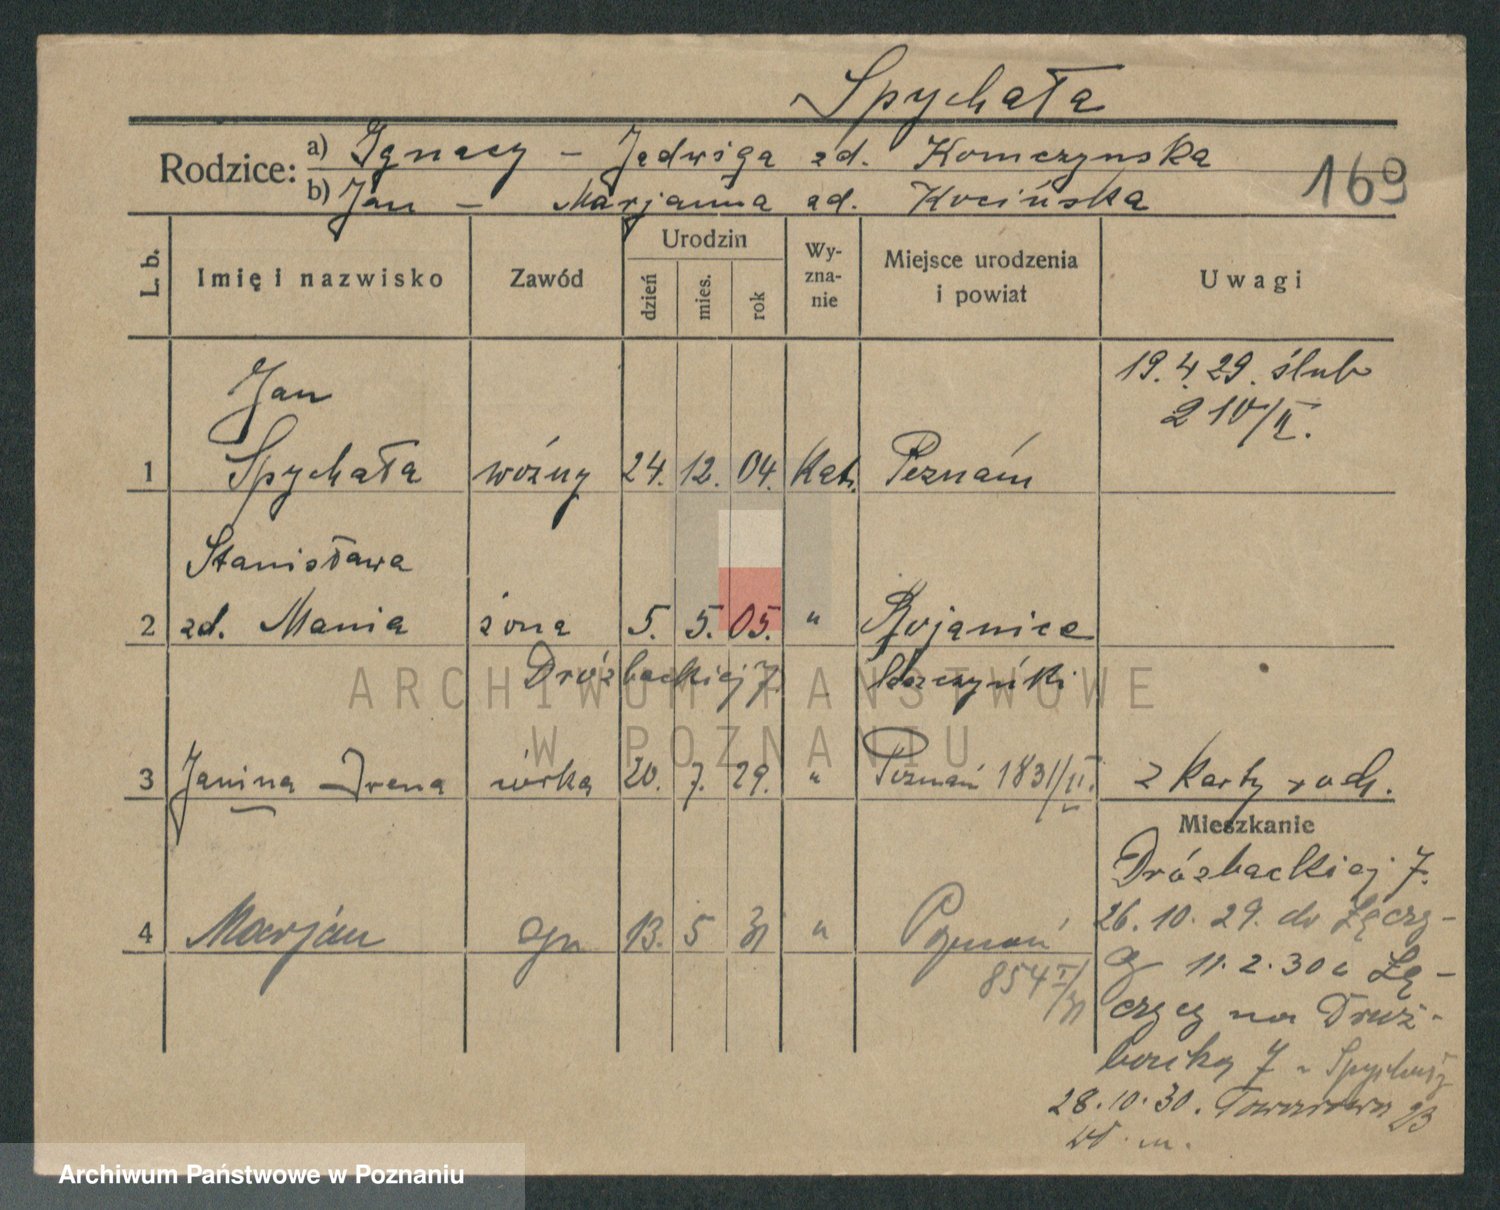 Spychała
Rodzice: a) Ignacy – Jadwiga zd. Komczynska
b) Jan – Marjanna zd. Kocińska
169
L. b. Imię i nazwisko Zawód Urodzin dzień mies. rok Wy-zna-nie Miejsce urodzenia i powiat Uwagi
19. 4. 29. ślub
210/II.
Jan
1 Spychała woźny 24. 12. 04. Kat. Poznań
Stanisława
2 zd. Mania żona 5. 5. 05. "
Dróżbackiej 7.
3 Janina Irena córka 20. 7. 29. " Poznań 1831/II. z karty rod.
Mieszkanie
Dróżbackiej 7.
4 Marjan 13. 5 31 " Poznań
854 I/31
26. 10. 29. do Łęczy-
cy 11. 2. 30 z Łę-
czycy na Druż-
backą 7
28. 10. 30. Towarowa 23
wł. m.
ARCHIWUM PAŃSTWOWE
W POZNANIU
Archiwum Państwowe w Poznaniu